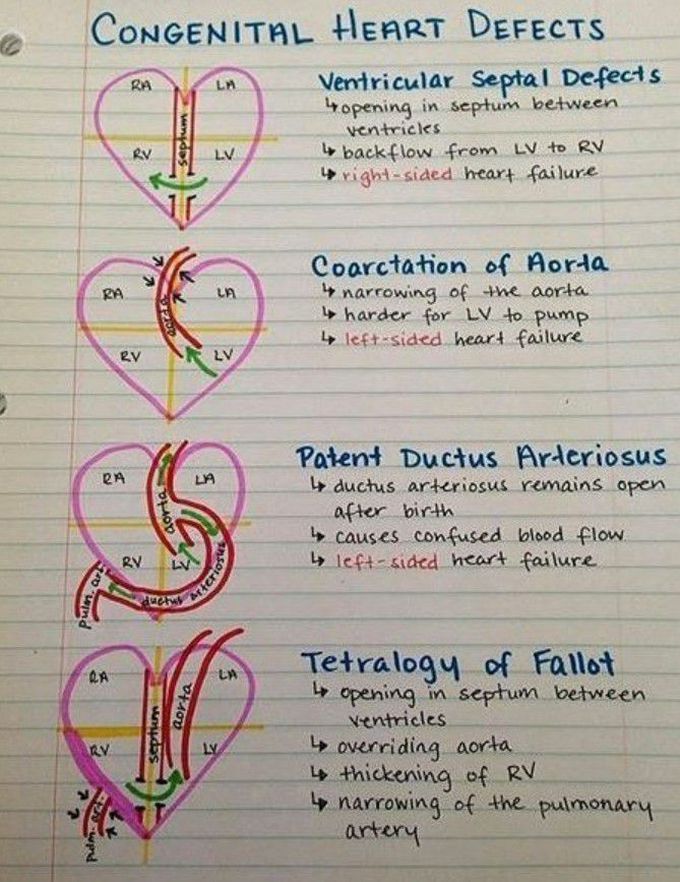 CONGENITAL HEART DEFECTS
RA LA
RV LV
septum
Ventricular Septal Defects
↳ opening in septum between
ventricles
↳ backflow from LV to RV
↳ right-sided heart failure
RA LA
RV LV
aorta
Coarctation of Aorta
↳ narrowing of the aorta
↳ harder for LV to pump
↳ left-sided heart failure
RA LA
RV LV
aorta
ductus arteriosus
pulm. art.
Patent Ductus Arteriosus
↳ ductus arteriosus remains open
after birth
↳ causes confused blood flow
↳ left-sided heart failure
RA LA
RV LV
septum
aorta
pulm. art.
Tetralogy of Fallot
↳ opening in septum between
ventricles
↳ overriding aorta
↳ thickening of RV
↳ narrowing of the pulmonary
artery